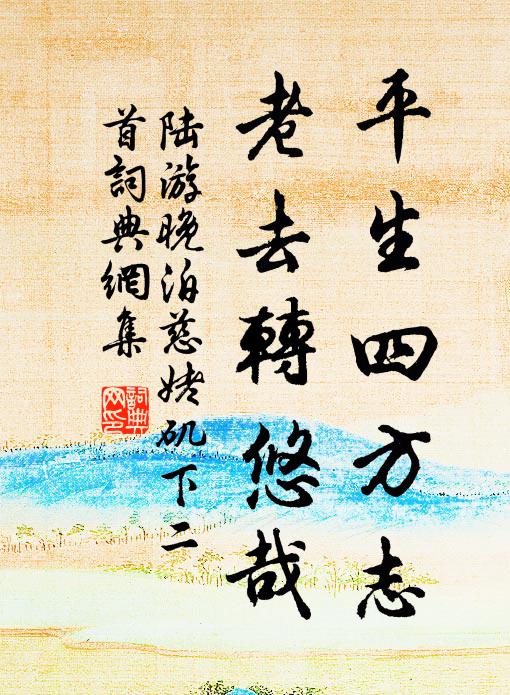 平生四方志
老去轉悠哉
陸游晚泊慈姥矶下二
首詞典網集
詞典
网印